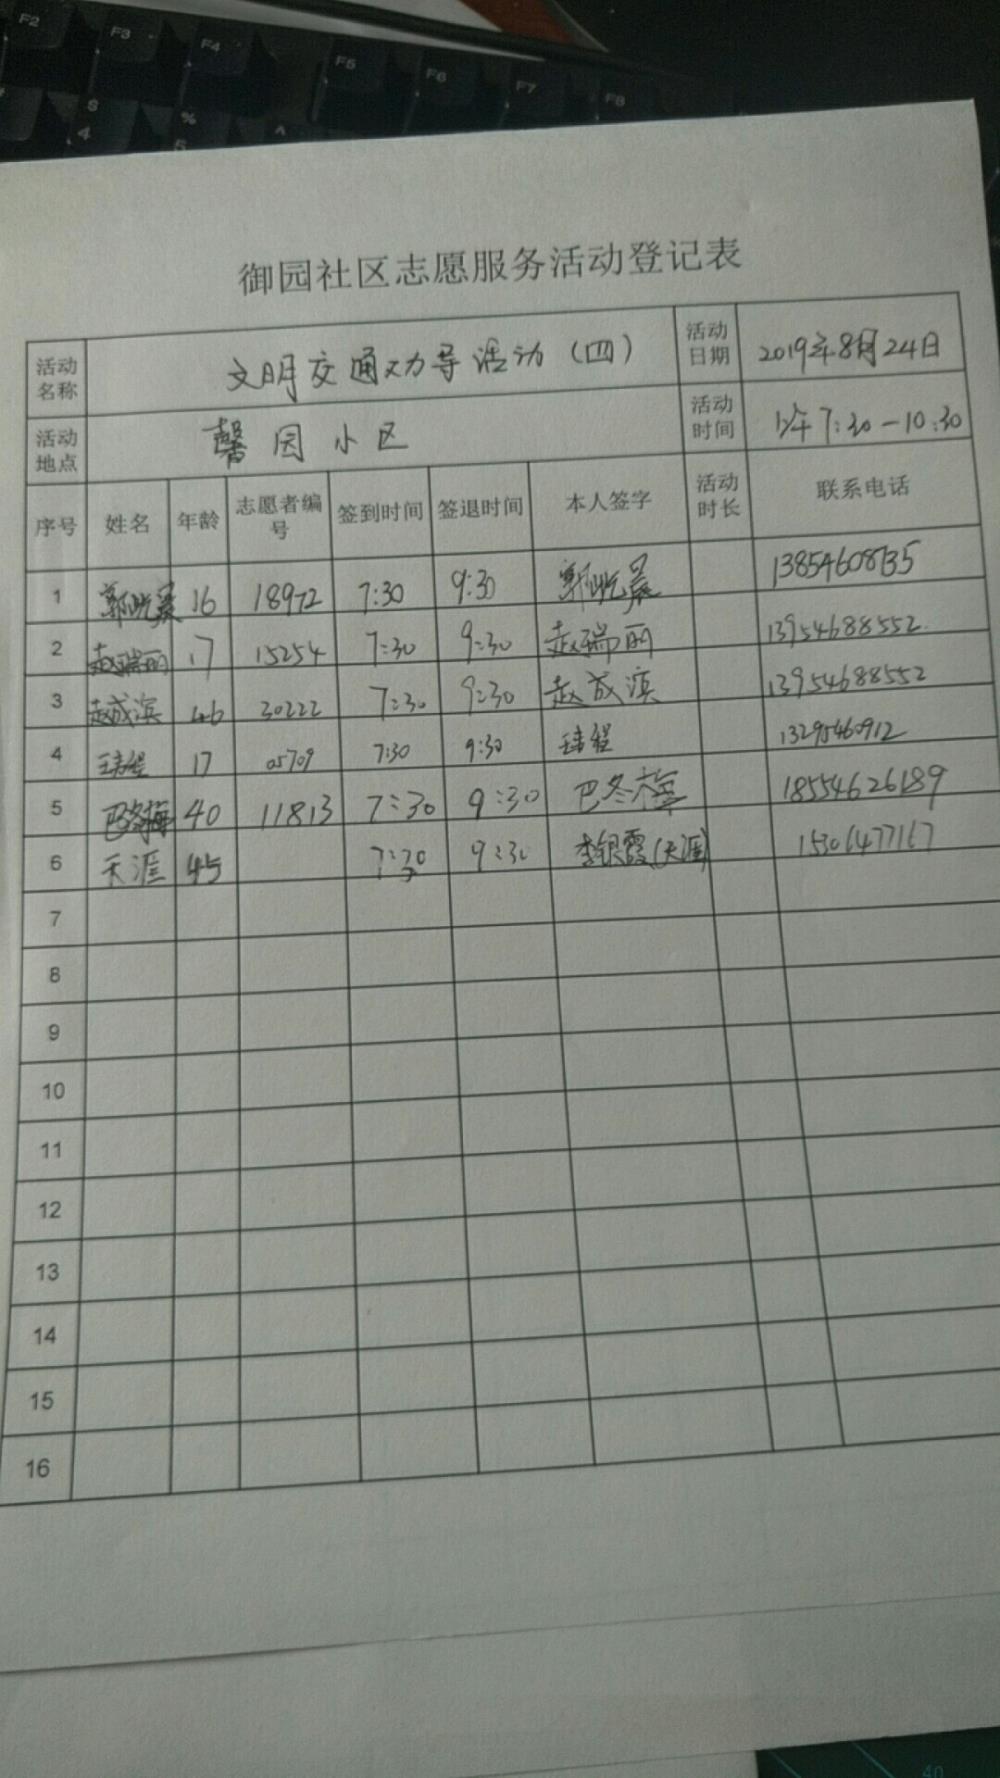 F2 F3 F4 F5 F6 F7 F8
$ 4 % 5 ^
御园社区志愿服务活动登记表
活动名称 文明交通劝导活动（四） 活动日期 2019年8月24日
活动地点 馨园小区 活动时间 7:30-10:30
序号 姓名 年龄 志愿者编号 签到时间 签退时间 本人签字 活动时长 联系电话
1 16 18972 7:30 9:30
2 赵瑞丽 17 15254 7:30 9:30 赵瑞丽 13954688552
3 赵成滨 46 30222 7:30 9:30 赵成滨 13954688552
4 17 05709 7:30 9:30 13295460912
5 巴冬梅 40 11813 7:30 9:30 巴冬梅 18554626189
6 天涯 45 7:30 9:30 李银霞(天涯) 15306477167
7
8
9
10
11
12
13
14
15
16
40